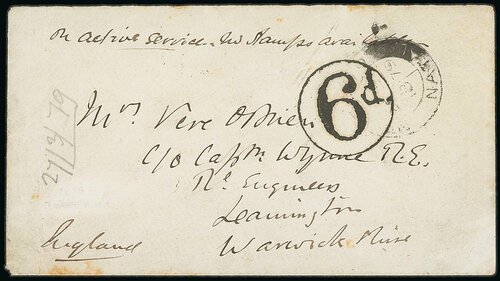 On active service. No stamps available
NATAL
6d.
Mrs Vere O'Brien
C/o Captn Wynne R.E.
Rl Engineers
Leamington
Warwick Shire
England
27/3/79